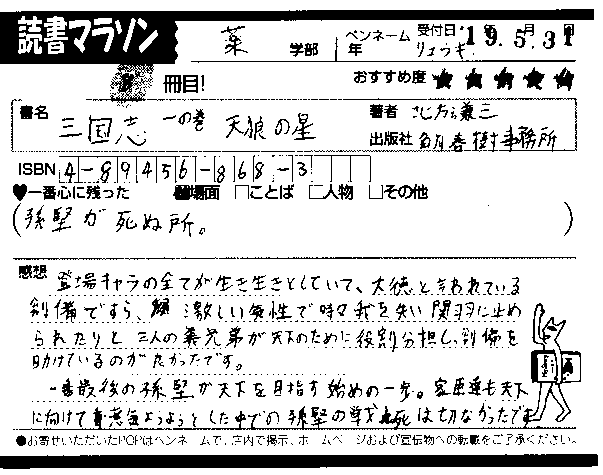 読書マラソン 薬 学部 年 ペンネーム リュウキ 受付日・19.5.31
冊目! おすすめ度 ★★★★★
書名 三国志 一の巻 天狼の星 著者
出版社 角川春樹事務所
ISBN 4-89456-868-3
♥一番心に残った ■場面 □ことば □人物 □その他
(孫堅が死ぬ所。)
感想 登場キャラの全てが生き生きとしていて、大徳と言われている
劉備ですら、激しい気性で時々我を失い関羽に止め
られたりと三人の義兄弟が天下のために役割分担し、劉備を
助けているのがよかったです。
一番最後の孫堅が天下を目指す始めの一歩。家臣達も天下
に向けて意気ようようとした中での孫堅の戦死は切なかったです
●お寄せいただいたPOPはペンネームで、店内で掲示、ホームページおよび宣伝物への転載をご了承ください。